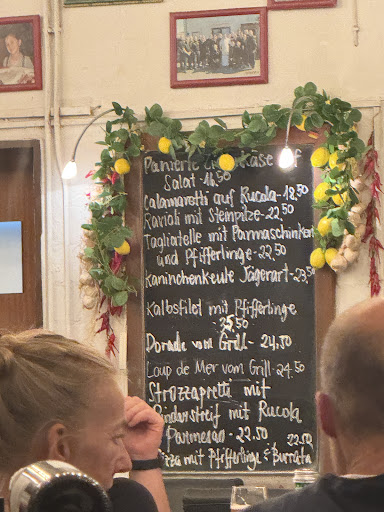 Panierte Käse auf
Salat - 16.50
Calamaretti auf Rucola - 18.50
Ravioli mit Steinpilze - 22.50
Tagliatelle mit Parmaschinken
und Pfifferlinge - 22.50
Kaninchenkeule Jägerart - 23.50
Kalbsfilet mit Pfifferlinge
25.50
Dorade vom Grill - 24.50
Loup de Mer vom Grill - 24.50
Strozzapretti mit
Rinderstreif mit Rucola
Parmesan - 22.50
22.50
Pizza mit Pfifferlinge & Burrata